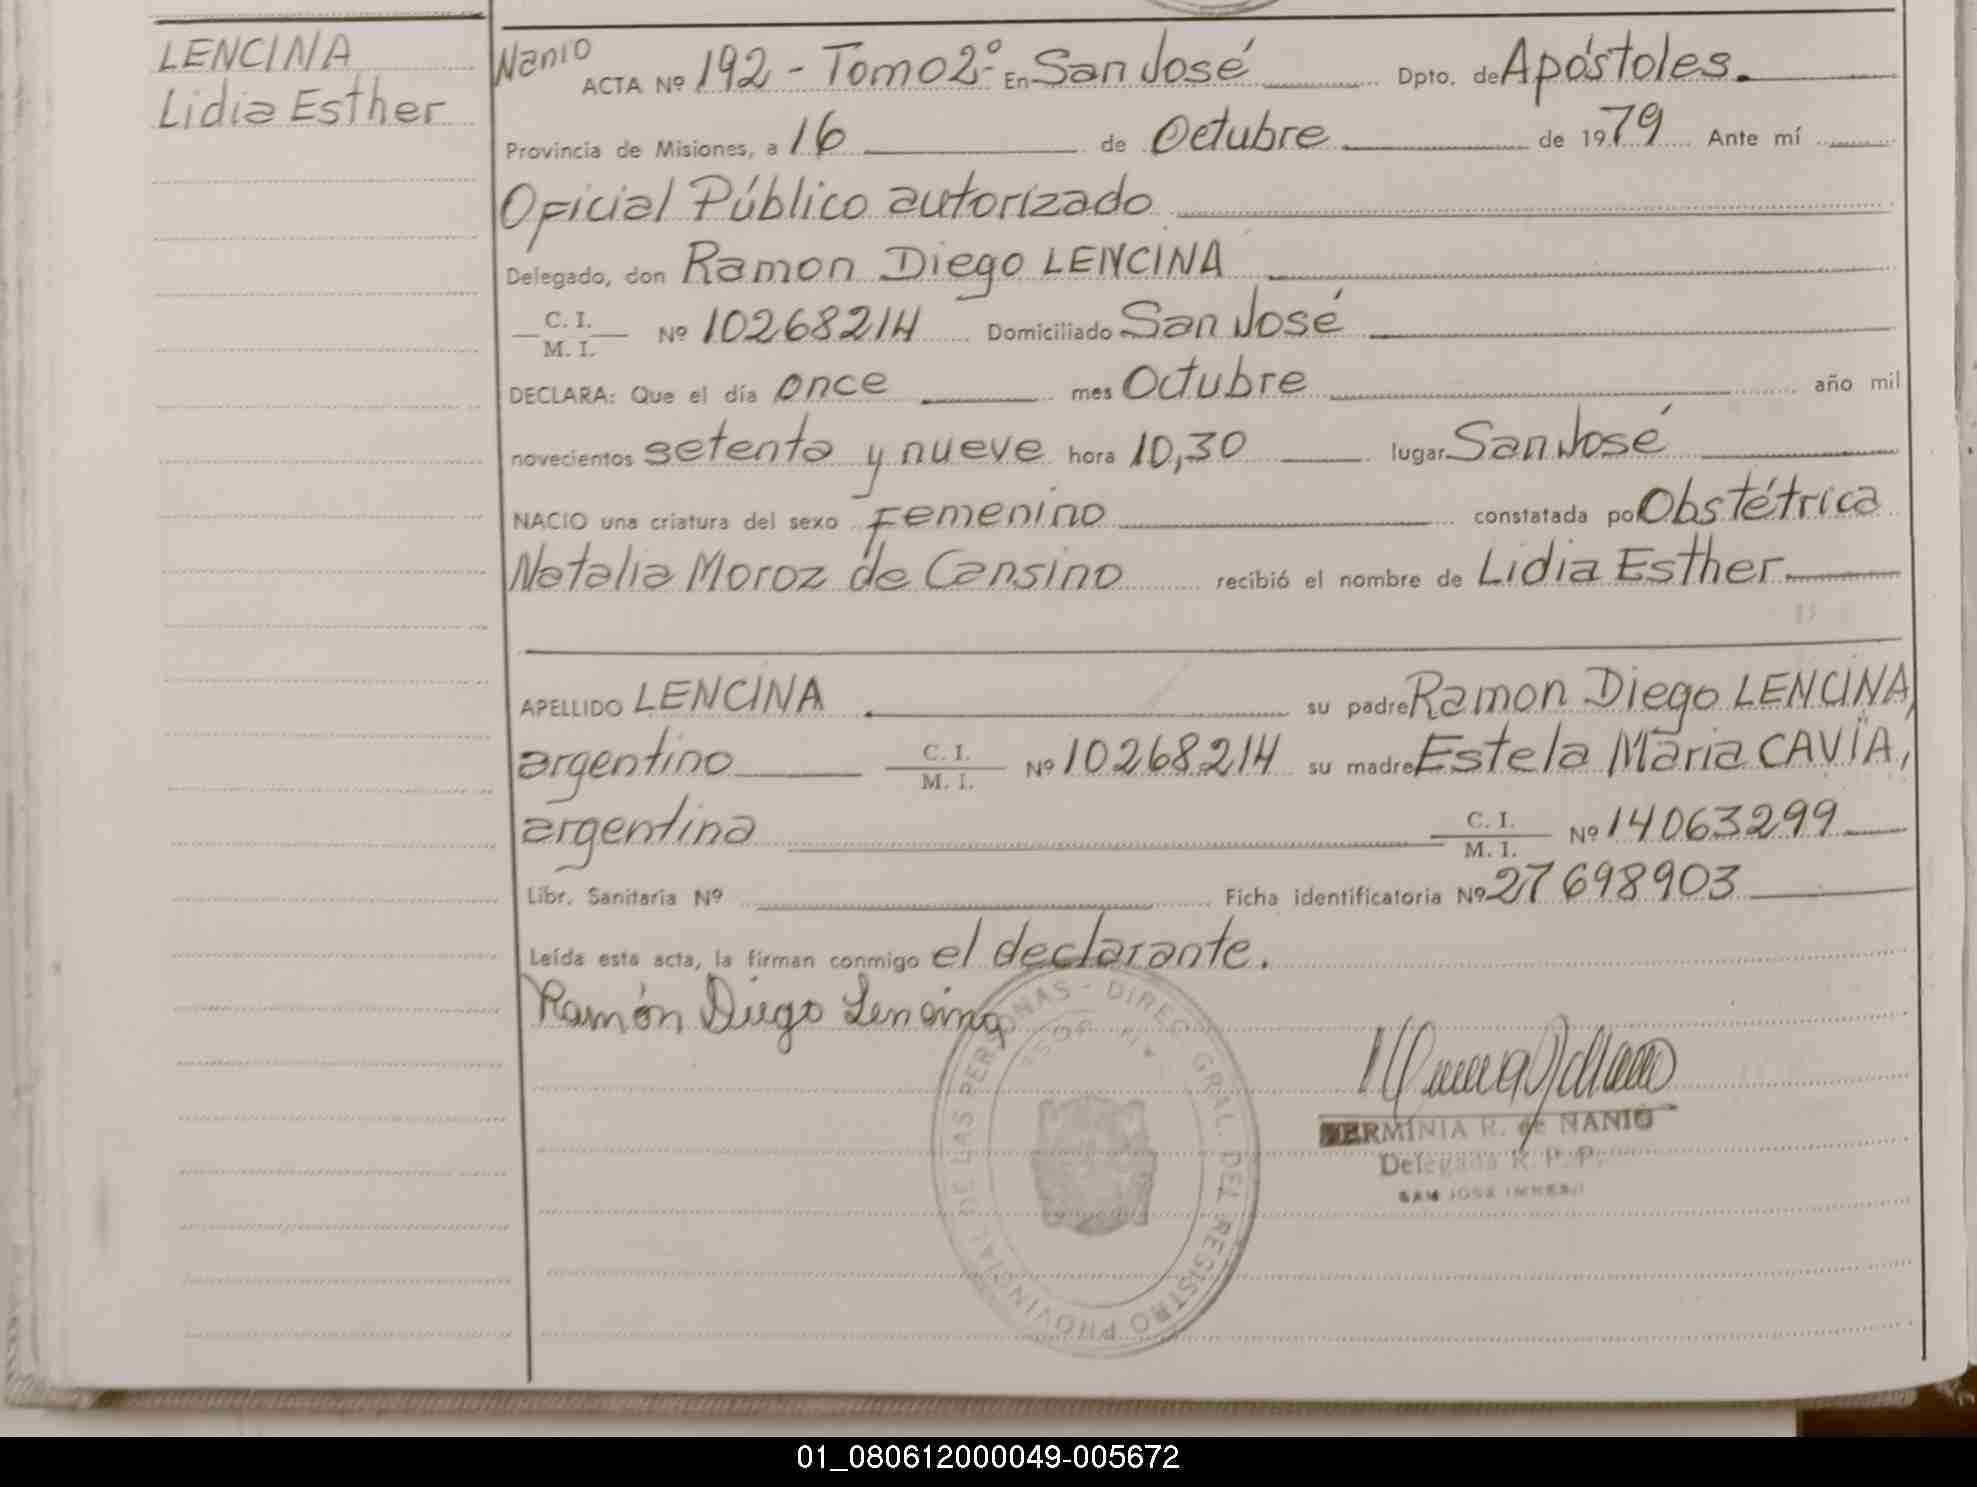 LENCINA
Lidia Esther
Nanio
ACTA Nº 192 - Tomo 2º En San José Dpto. de Apóstoles.
Provincia de Misiones, a 16 de Octubre de 1979 Ante mí
Oficial Público autorizado
Delegado, don Ramon Diego LENCINA
C. I.
M. I. Nº 10268214 Domiciliado San José
DECLARA: Que el día once mes Octubre año mil
novecientos setenta y nueve hora 10,30 lugar San José
NACIO una criatura del sexo Femenino constatada por Obstétrica
Natalia Moroz de Cansino recibió el nombre de Lidia Esther
APELLIDO LENCINA su padre Ramon Diego LENCINA,
argentino C. I. M. I. Nº 10268214 su madre Estela María CAVIA,
argentina C. I. M. I. Nº 14063299
Libr. Sanitaria Nº Ficha identificatoria Nº 27698903
Leída esta acta, la firman conmigo el declarante.
Ramón Diego Lencina
HERMINIA R. de NANIO
Delegada R. P. P.
SAN JOSE
PROVINCIAL DE LAS PERSONAS - DIREC. GRAL. DEL REGISTRO
01_080612000049-005672